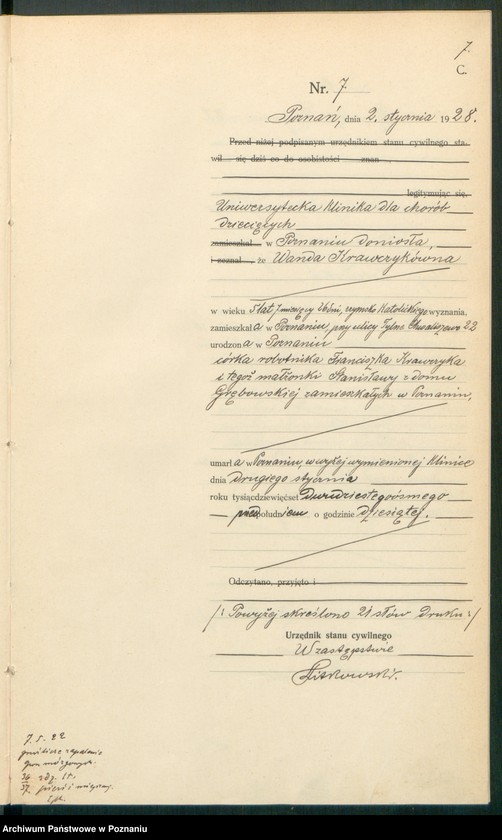 7.
C.
Nr. 7
Poznań, dnia 2. stycznia 1928.
Przed niżej podpisanym urzędnikiem stanu cywilnego sta-
wił się dziś co do osobistości znan
legitymując się,
Uniwersytecka Klinika dla chorób
dziecięcych
zamieszkał w Poznaniu doniosła,
i zeznał, że Wanda Krawczykówna
w wieku 5 lat 7 miesięcy dni, rzymsko Katolickiego wyznania,
zamieszkała w Poznaniu, przy ulicy Tylne Chwaliszewo 22
urodzona w Poznaniu
córka robotnika Franciszka Krawczyka
i tegoż małżonki Stanisławy z domu
Grębowskiej zamieszkałych w Poznaniu,
umarła w Poznaniu, w wyżej wymienionej Klinice
dnia drugiego stycznia
roku tysiącdziewięćset dwudziestegoósmego
przedpołudniem o godzinie dziesiątej.
Odczytano, przyjęto i
/: Powyżej skreślono 21 słów druku :/
Urzędnik stanu cywilnego
W zastępstwie
7. 5. 22
gruźlicze zapalenie
opon mózgowych.
Archiwum Państwowe w Poznaniu